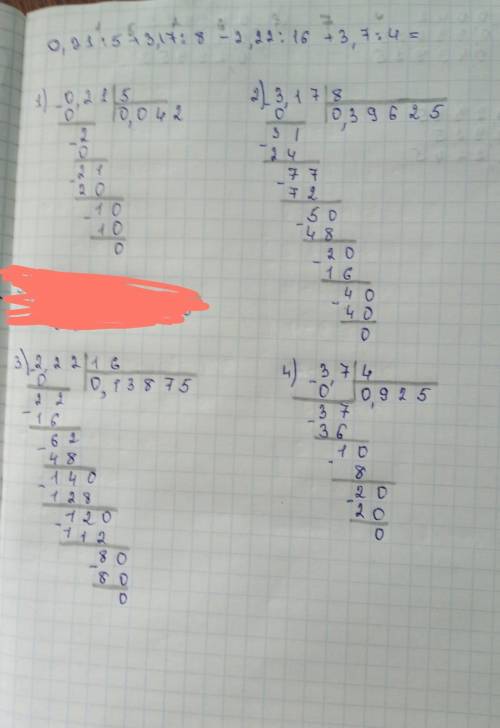 0,21:5+3,17:8-2,22:16+3,7:4=
1) 0,22 | 5
0 | 0,042
-2
0
-21
20
-10
10
0
2) 3,17 | 8
0 | 0,39625
31
-24
-77
72
-50
48
-20
16
-40
40
0
3) 2,22 | 16
0 | 0,13875
22
-16
-62
48
-140
128
-120
112
-80
80
0
4) -3,7 | 4
0 | 0,925
-37
36
-10
8
-20
20
0